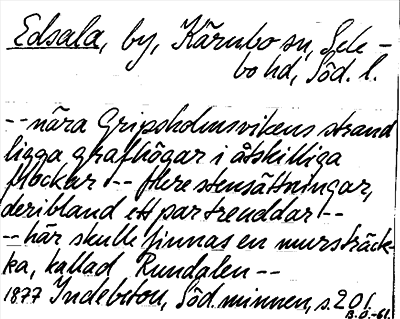 Edsala, by, Kärnbo sn, Sele-
bo hd, Söd. l.
-- nära Gripsholmsvikens strand
ligga grafhögar i åtskilliga
flockar -- flere stensättningar,
deribland ett par treuddar --
-- här skulle finnas en mursträck-
ka, kallad Rundalen --
1877 Indebetou, Söd. minnen, s. 201.
B.O.-61.